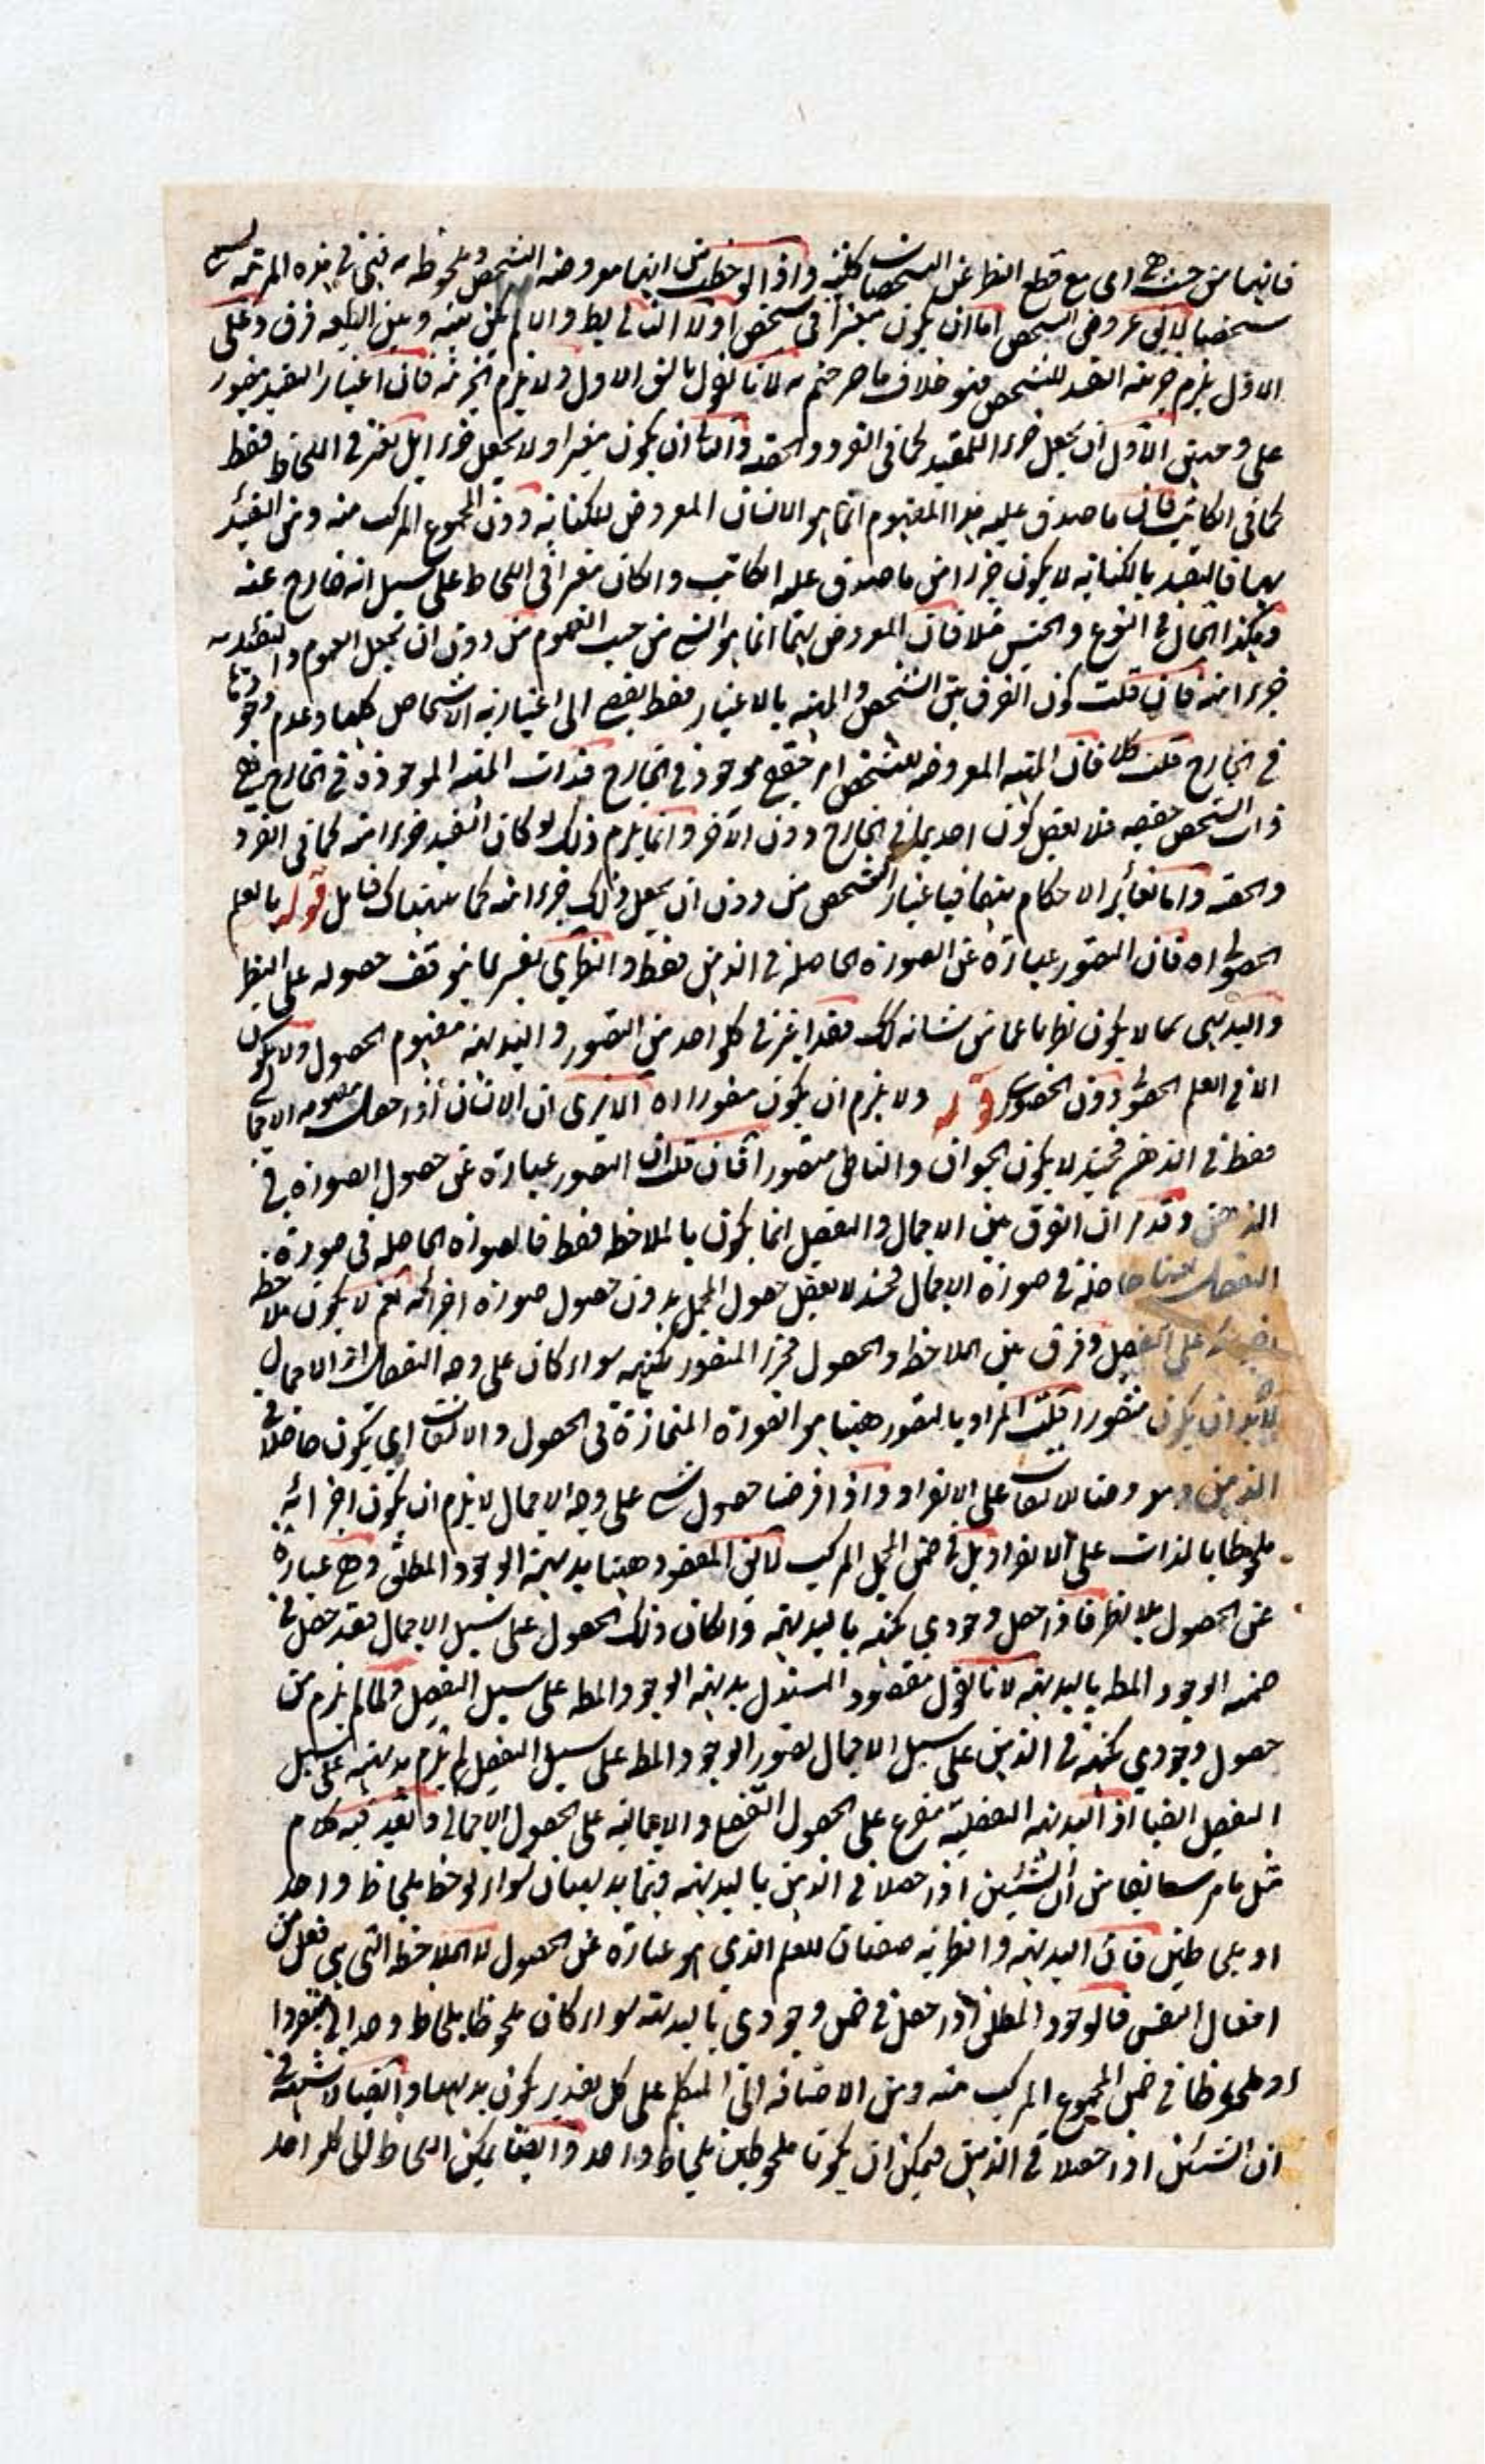 فانها من حيث هي اى مع قطع النظر عن التشخصات كلية واذا لوحظت من انها معروضة التشخص وملحوظة به فهي في هذه المرتبة ليس
شخصا لان عروض التشخص اما ان يكون معتبرا في شخص اولا الثاني بط والا لم يكن بينه وبين الطبيعة فرق وعلى
الاول يلزم جزئية التقييد للتشخص فهو خلاف ما صرحتم به لانا نقول بالشق الاول ولا يلزم الجزئية فان اعتبار التقييد متصور
على وجهين الاول ان يجعل جزءا للمقيد كما في الفرد والحصة والثاني ان يكون معتبرا ولا يجعل جزءا بل يعتبر في اللحاظ فقط
كما في الكاتب فان ما صدق عليه هذا المفهوم انما هو الانسان المعروض للكتابة دون المجموع المركب منه ومن التقييد
بها فالتقييد بالكتابة لا يكون جزءا من ما صدق عليه الكاتب وان كان معتبرا في اللحاظ على سبيل انه خارج عنه
وهكذا الحال في النوع والجنس مثلا فان المعروض لهما انما هو الشيء من حيث العموم من دون ان يجعل العموم والتقييد به
جزءا منه فان قلت كون الفرق بين الشخص والمهية بالاعتبار فقط يفضي الى اعتبارية الاشخاص كلها وعدم وجودها
في الخارج قلت كلا فان المهية المعروضة للتشخص امر حقيقي موجود في الخارج فذات المهية الموجودة في الخارج هي
ذات الشخص حقيقة فلا يعقل كون احديهما في الخارج دون الآخر وانما يلزم ذلك لو كان التقييد جزءا منه كما في الفرد
والحصة واما تغاير الاحكام بينهما فباعتبار التشخص من دون ان يجعل ذلك جزءا منه كما نبهناك فتأمل قوله بالعلم
الحصولي اه فان التصور عبارة عن الصورة الحاصلة في الذهن فقط والنظري يفسر بما يتوقف حصوله على النظر
والبديهي بما لا يكون نظريا عما من شانه ذلك فقد اعتبر في كل واحد من التصور والبديهة مفهوم الحصول ولا يكون
الا في العلم الحصولي دون الحضوري قوله ولا يلزم ان يكون متصورا اه الا ترى ان الانسان اذا حصل مفهومه الاجمالي
فقط في الذهن فحينئذ لا يكون الحيوان والناطق متصورا فان قلت ان التصور عبارة عن حصول الصورة في
الذهن وقد مر ان الفرق بين الاجمال والتفصيل انما يكون بالملاحظة فقط فالصورة الحاصلة في صورة
التفصيل بعينها حاصلة في صورة الاجمال فحينئذ لا يعقل حصول المجمل بدون حصول صورة اجزائه نعم لا يكون ملاحظة
على التفصيل وفرق بين الملاحظة والحصول فجزء المتصور بكنهه سواء كان على وجه التفصيل او الاجمال
لا بد ان يكون متصورا قلت المراد بالتصور ههنا هو الصورة الممتازة في الحصول والالتفات اي يكون حاصلا في
الذهن ومعروضا للالتفات على الانفراد واذا فرضنا حصول شيء على وجه الاجمال لا يلزم ان يكون اجزائه
ملحوظا بالذات على الانفراد بل في ضمن المجمل المركب لا يق المقصود ههنا بديهية الوجود المطلق وهي عبارة
عن الحصول بلا نظر فاذا حصل وجودي بكنهه بالبديهة وان كان ذلك الحصول على سبيل الاجمال فقد حصل في
ضمنه الوجود المط بالبديهة لانا نقول مقصود المستدل بديهية الوجود المط على سبيل التفصيل ولما لم يلزم من
حصول وجودي بكنهه في الذهن على سبيل الاجمال تصور الوجود المط على سبيل التفصيل لم يلزم بديهيته على سبيل
التفصيل ايضا اذ البديهية التفصيلية متفرع على الحصول التفصيلي والاجمالية على الحصول الاجمالي وبعد فيه كلام
مثل ما مر سابقا من ان الشيئين اذا حصلا في الذهن بالبديهة فهما بديهيان سواء لوحظ بلحاظ واحد
او بلحاظين فان البديهية والنظرية صفتان للعلم الذي هو عبارة عن الحصول لا الملاحظة التي هي فعل من
افعال النفس فالوجود المطلق اذا حصل في ضمن وجودي بالبديهة سواء كان ملحوظا بلحاظ وحداني منفردا
او ملحوظا في ضمن المجموع المركب منه ومن الاضافة الى المتكلم على كل تقدير يكون بديهيا وايضا لا شبهة في
ان الشيئين اذا حصلا في الذهن فيمكن ان يكونا ملحوظين بلحاظ واحد وايضا يمكن اللحاظ الى كل واحد